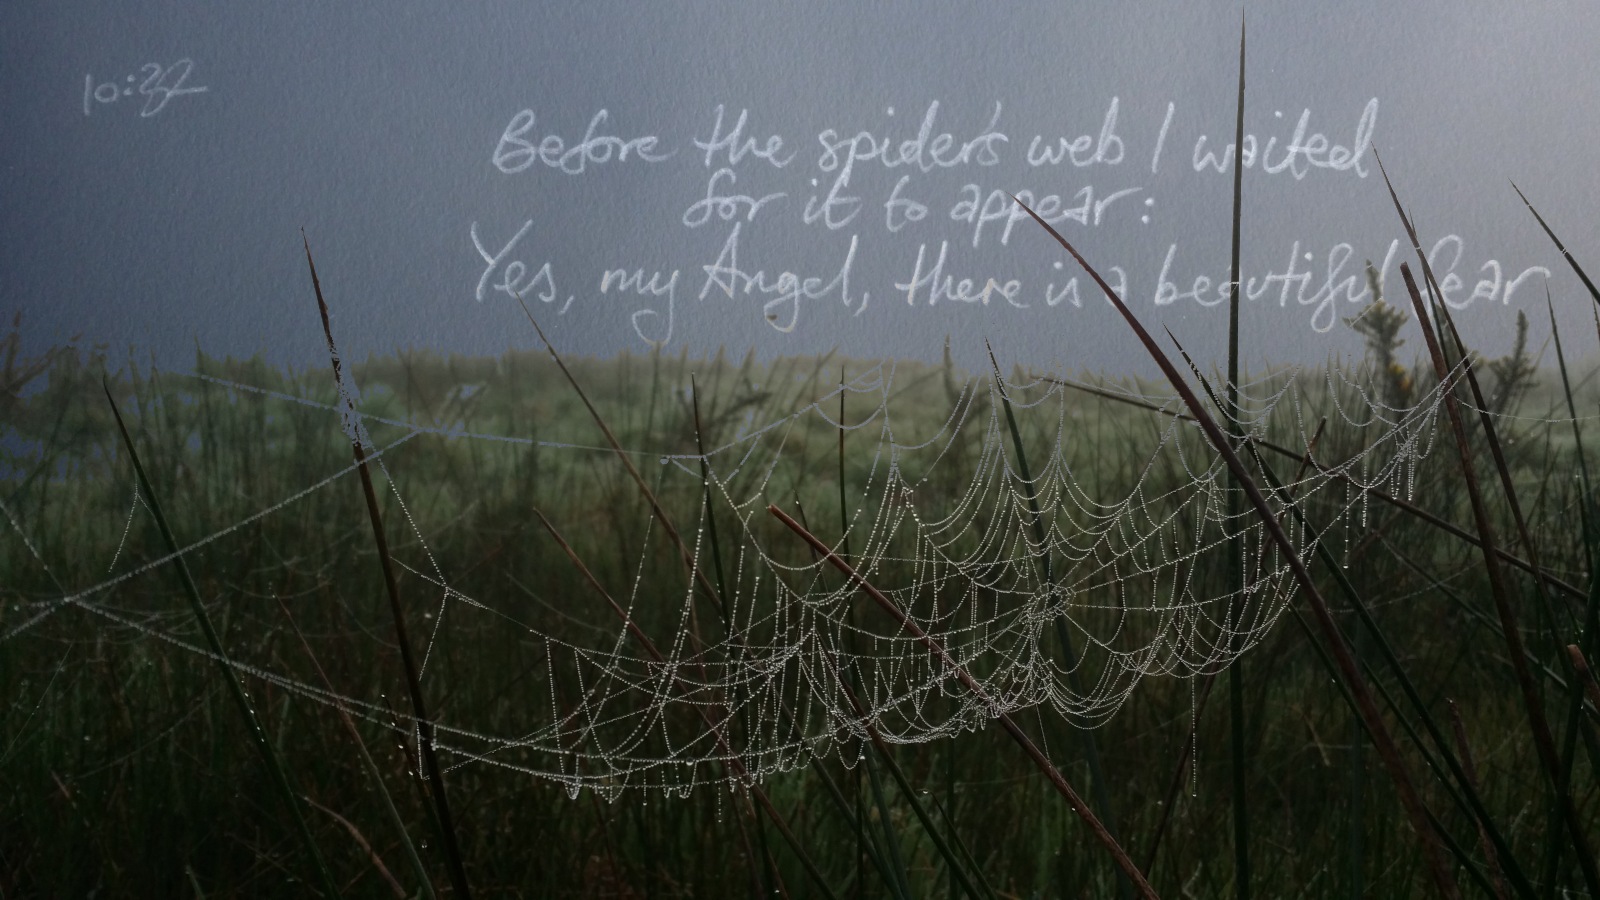 10:32
Before the spider's web I waited
for it to appear:
Yes, my Angel, there is a beautiful fear